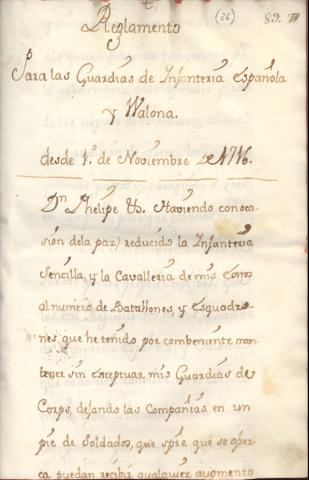 (26) 89.
Reglamento
Para las Guardias de Infanteria Española
y Walona.
desde 1.º de Noviembre de 1716.
Dn Phelipe &a. Haviendo con oca-
sion dela paz reducido la Infanteria
Sencilla, y la Cavalleria de mis
al numero de Batallones, y Esquadro-
nes que he tenido por combeniente man-
tener sin exceptuar mis Guardias de
Corps, dejando las Compañias en un
pie de Soldados, que spre. que se ofrez-
ca puedan recibir qualquier augmento